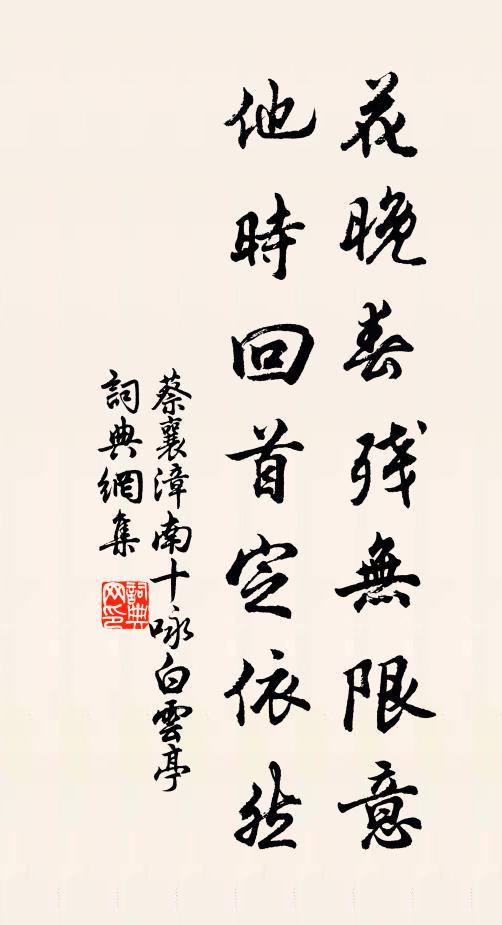 花晚春残無限意
他時回首定依然
蔡襄漳南十咏白雲亭
詞典網集
詞典网印